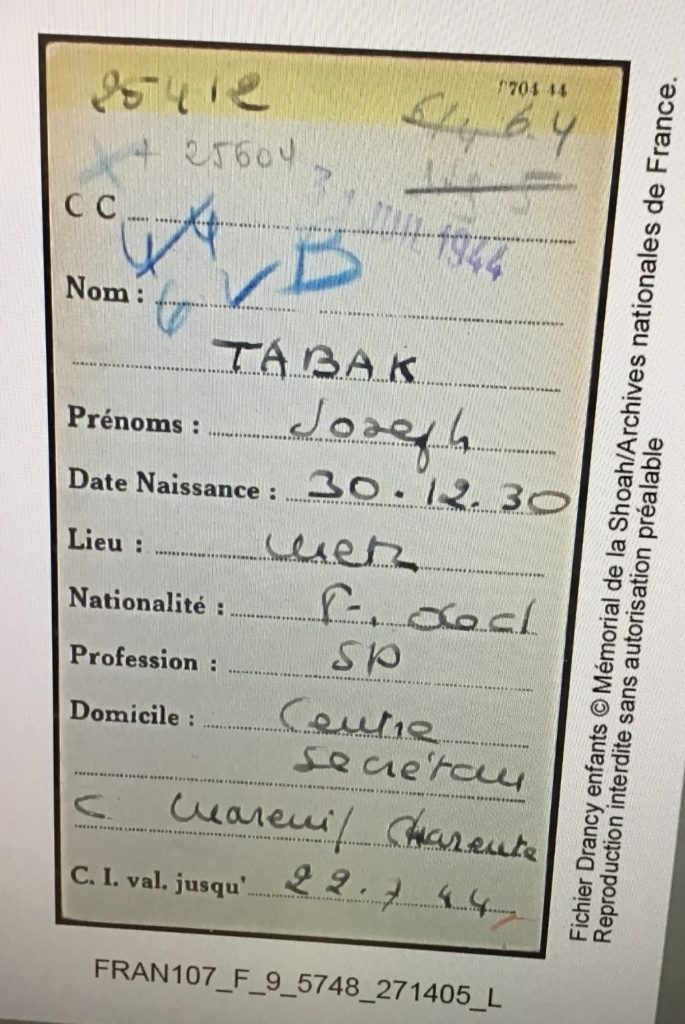 25412
704 44
6.4
+ 25604
3 JUIL 1944
C C
B
Nom :
TABAK
Prénoms : Joseph
Date Naissance : 30.12.30
Lieu : Metz
Nationalité : F.
Profession : SP
Domicile : Centre
Secrétan
C. Mareuil Charente
C. I. val. jusqu' 22.7 44
Fichier Drancy enfants © Mémorial de la Shoah/Archives nationales de France.
Reproduction interdite sans autorisation préalable
FRAN107_F_9_5748_271405_L